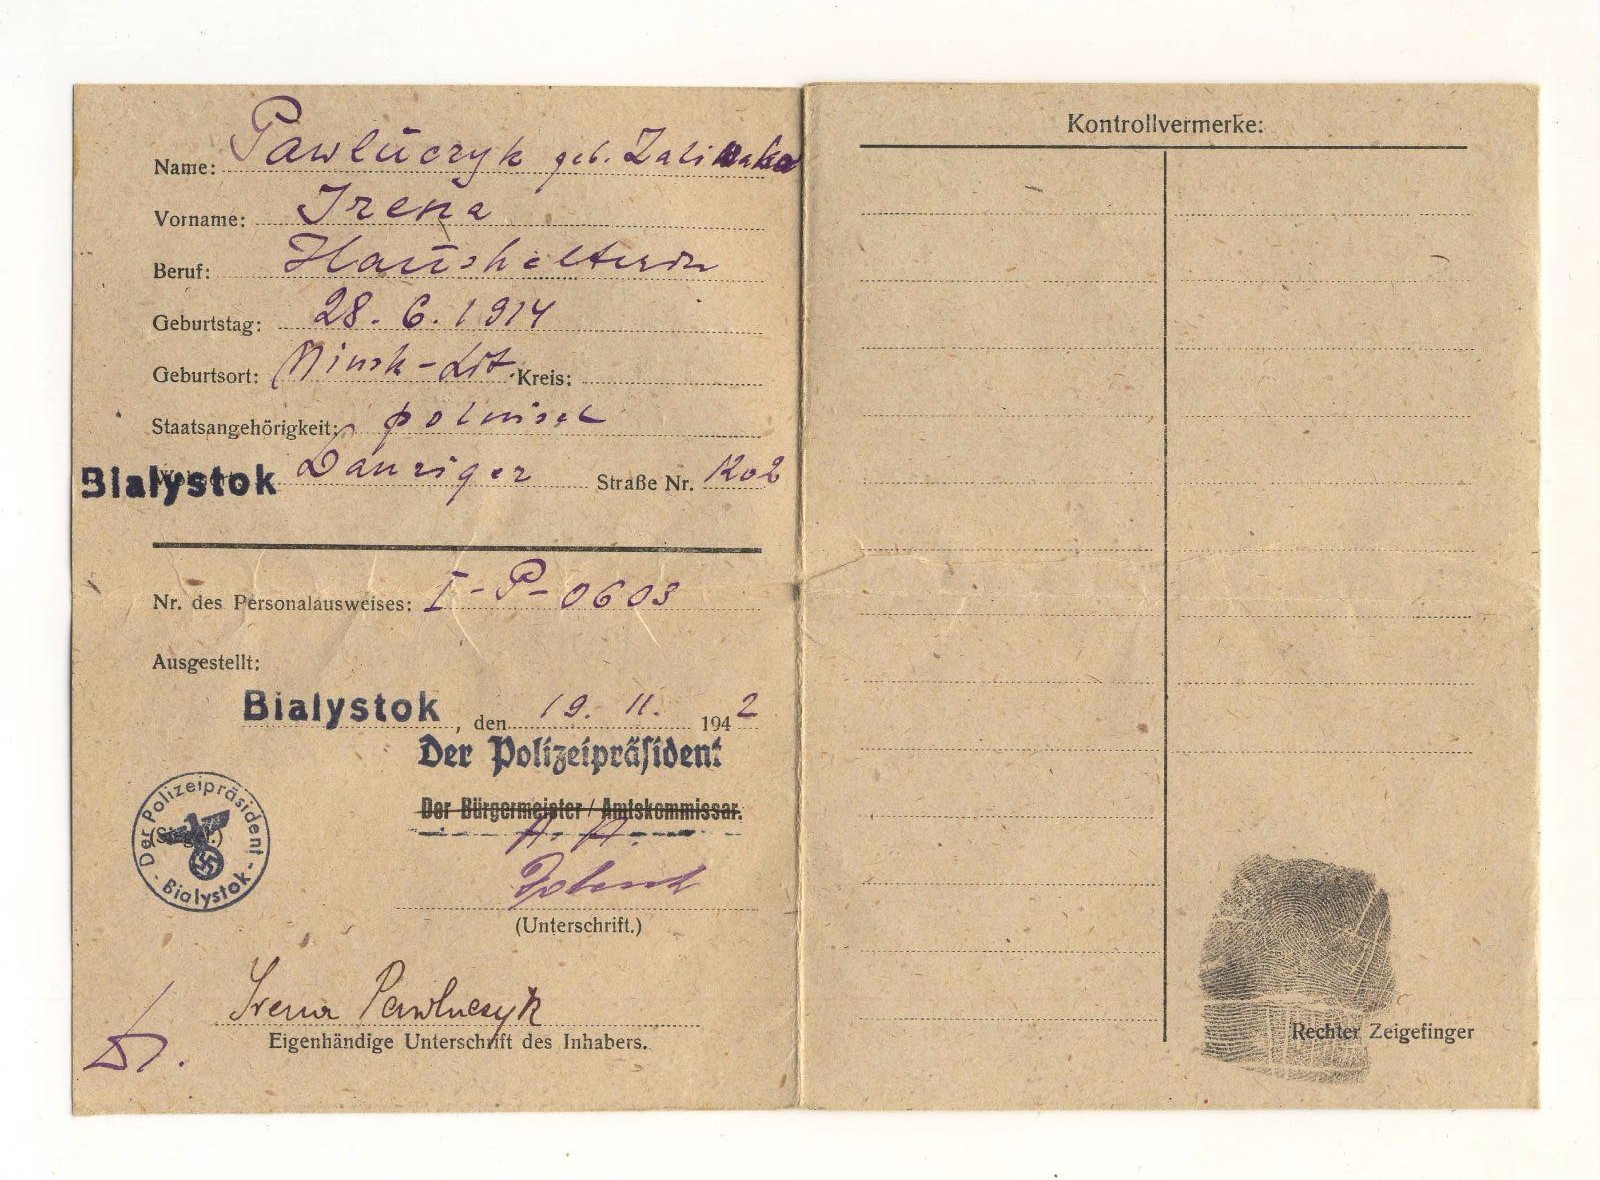 Name: Pawluczyk geb.
Vorname: Irena
Beruf: Haushälterin
Geburtstag: 28. 6. 1914
Geburtsort: Minsk-Lit. Kreis:
Staatsangehörigkeit: polnisch
Bialystok Danziger Straße Nr.
Nr. des Personalausweises: I-P-0603
Ausgestellt:
Bialystok, den 19. 11. 1942
Der Polizeipräsident
Der Bürgermeister / Amtskommissar.
(Siegel)
Der Polizeipräsident
- Bialystok -
(Unterschrift.)
Irena Pawluczyk
Eigenhändige Unterschrift des Inhabers.
Kontrollvermerke:
Rechter Zeigefinger